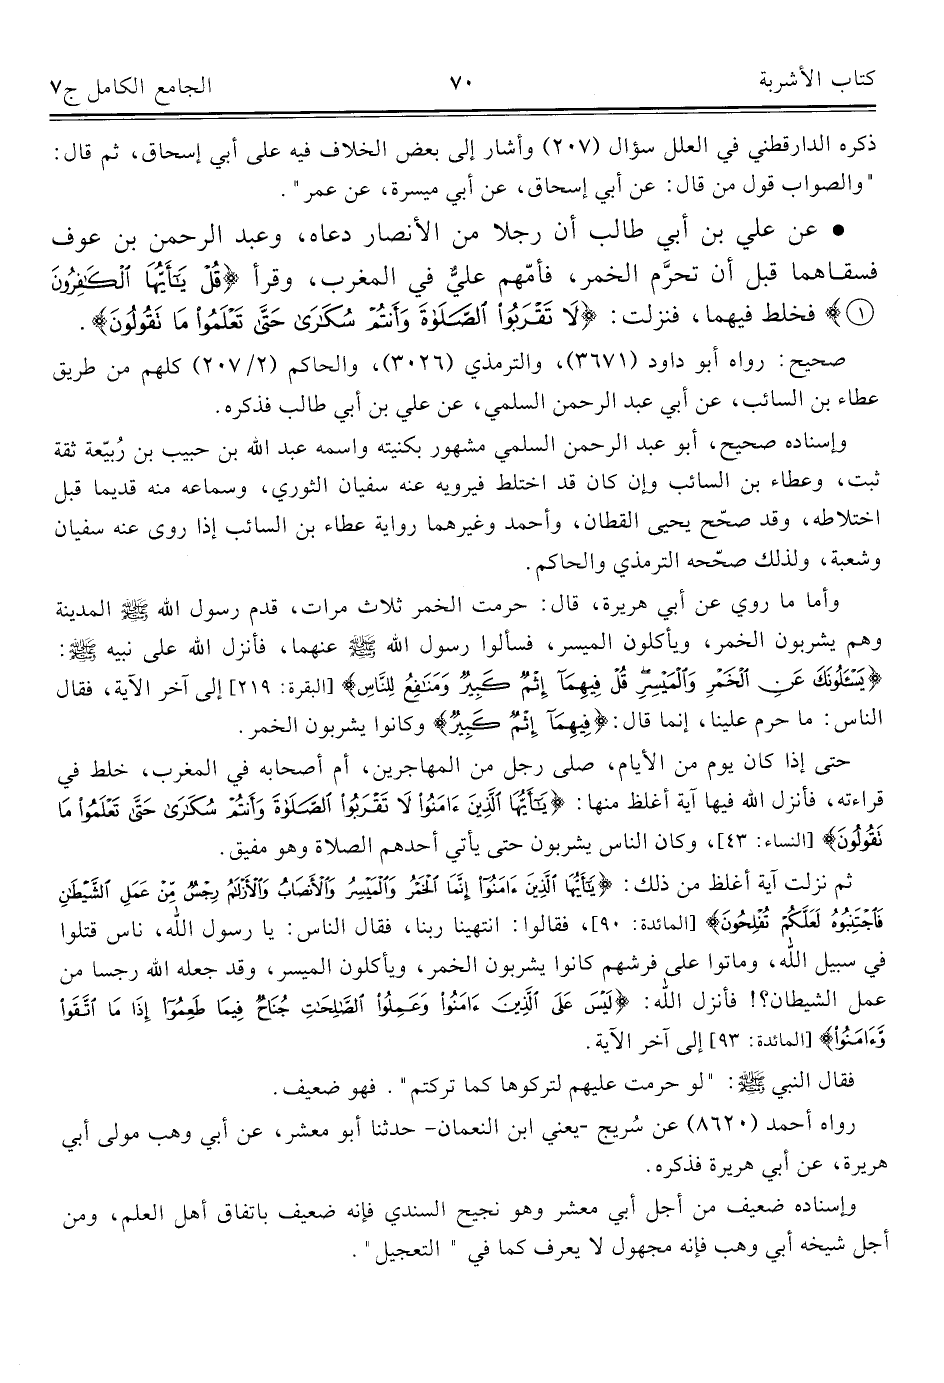 كتاب الأشربة ٧٠ الجامع الكامل ج٧
ذكره الدارقطني في العلل سؤال (٢٠٧) وأشار إلى بعض الخلاف فيه على أبي إسحاق، ثم قال:
"والصواب قول من قال: عن أبي إسحاق، عن أبي ميسرة، عن عمر".
• عن علي بن أبي طالب أن رجلا من الأنصار دعاه، وعبد الرحمن بن عوف
فسقاهما قبل أن تحرَّم الخمر، فأمّهم عليٌّ في المغرب، وقرأ ﴿قُلْ يَٰٓأَيُّهَا ٱلْكَٰفِرُونَ
١﴾ فخلط فيهما، فنزلت: ﴿لَا تَقْرَبُوا۟ ٱلصَّلَوٰةَ وَأَنتُمْ سُكَٰرَىٰ حَتَّىٰ تَعْلَمُوا۟ مَا تَقُولُونَ﴾.
صحيح: رواه أبو داود (٣٦٧١)، والترمذي (٣٠٢٦)، والحاكم (٢/ ٢٠٧) كلهم من طريق
عطاء بن السائب، عن أبي عبد الرحمن السلمي، عن علي بن أبي طالب فذكره.
وإسناده صحيح، أبو عبد الرحمن السلمي مشهور بكنيته واسمه عبد الله بن حبيب بن رُبيّعة ثقة
ثبت، وعطاء بن السائب وإن كان قد اختلط فيرويه عنه سفيان الثوري، وسماعه منه قديما قبل
اختلاطه، وقد صحّح يحيى القطان، وأحمد وغيرهما رواية عطاء بن السائب إذا روى عنه سفيان
وشعبة، ولذلك صحّحه الترمذي والحاكم.
وأما ما روي عن أبي هريرة، قال: حرمت الخمر ثلاث مرات، قدم رسول الله ﷺ المدينة
وهم يشربون الخمر، ويأكلون الميسر، فسألوا رسول الله ﷺ عنهما، فأنزل الله على نبيه ﷺ:
﴿يَسْـَٔلُونَكَ عَنِ ٱلْخَمْرِ وَٱلْمَيْسِرِ ۖ قُلْ فِيهِمَآ إِثْمٌ كَبِيرٌ وَمَنَٰفِعُ لِلنَّاسِ﴾ [البقرة: ٢١٩] إلى آخر الآية، فقال
الناس: ما حرم علينا، إنما قال: ﴿فِيهِمَآ إِثْمٌ كَبِيرٌ﴾ وكانوا يشربون الخمر.
حتى إذا كان يوم من الأيام، صلى رجل من المهاجرين، أم أصحابه في المغرب، خلط في
قراءته، فأنزل الله فيها آية أغلظ منها: ﴿يَٰٓأَيُّهَا ٱلَّذِينَ ءَامَنُوا۟ لَا تَقْرَبُوا۟ ٱلصَّلَوٰةَ وَأَنتُمْ سُكَٰرَىٰ حَتَّىٰ تَعْلَمُوا۟ مَا
تَقُولُونَ﴾ [النساء: ٤٣]، وكان الناس يشربون حتى يأتي أحدهم الصلاة وهو مفيق.
ثم نزلت آية أغلظ من ذلك: ﴿يَٰٓأَيُّهَا ٱلَّذِينَ ءَامَنُوٓا۟ إِنَّمَا ٱلْخَمْرُ وَٱلْمَيْسِرُ وَٱلْأَنصَابُ وَٱلْأَزْلَٰمُ رِجْسٌ مِّنْ عَمَلِ ٱلشَّيْطَٰنِ
فَٱجْتَنِبُوهُ لَعَلَّكُمْ تُفْلِحُونَ﴾ [المائدة: ٩٠]، فقالوا: انتهينا ربنا، فقال الناس: يا رسول الله، ناس قتلوا
في سبيل الله، وماتوا على فرشهم كانوا يشربون الخمر، ويأكلون الميسر، وقد جعله الله رجسا من
عمل الشيطان؟! فأنزل الله: ﴿لَيْسَ عَلَى ٱلَّذِينَ ءَامَنُوا۟ وَعَمِلُوا۟ ٱلصَّٰلِحَٰتِ جُنَاحٌ فِيمَا طَعِمُوٓا۟ إِذَا مَا ٱتَّقَوا۟
وَّءَامَنُوا۟﴾ [المائدة: ٩٣] إلى آخر الآية.
فقال النبي ﷺ: "لو حرمت عليهم لتركوها كما تركتم". فهو ضعيف.
رواه أحمد (٨٦٢٠) عن سُريج -يعني ابن النعمان- حدثنا أبو معشر، عن أبي وهب مولى أبي
هريرة، عن أبي هريرة فذكره.
وإسناده ضعيف من أجل أبي معشر وهو نجيح السندي فإنه ضعيف باتفاق أهل العلم، ومن
أجل شيخه أبي وهب فإنه مجهول لا يعرف كما في "التعجيل".